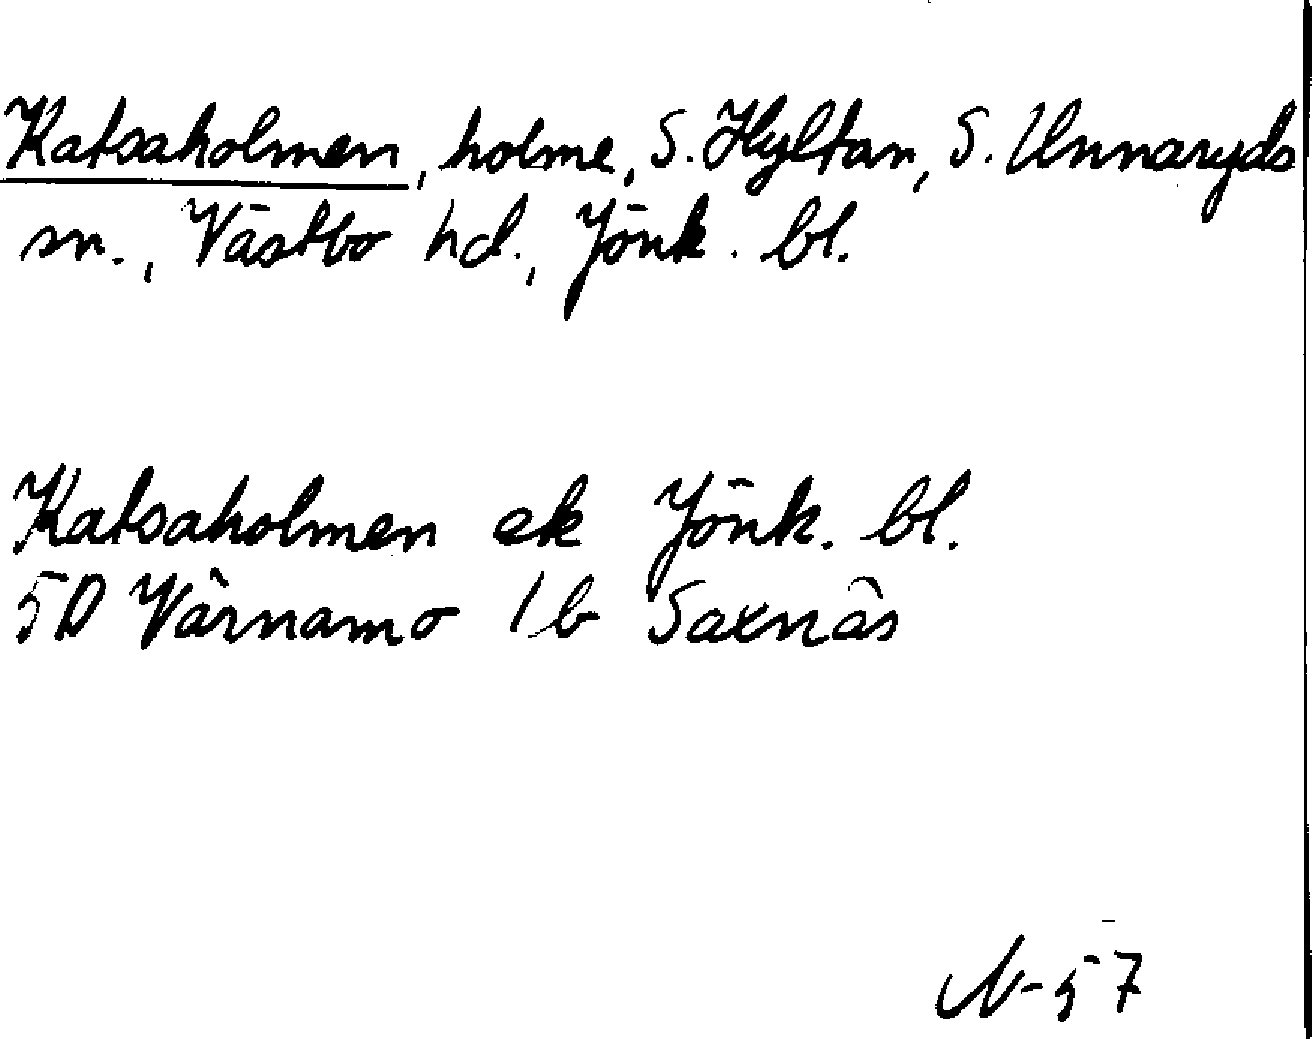 Katsaholmen, holme, S. Hyltan, S. Unnaryds
sn., Västbo hd., Jönk. bl.
Katsaholmen ek Jönk. bl.
5D Värnamo 1b Saxnäs
N-57